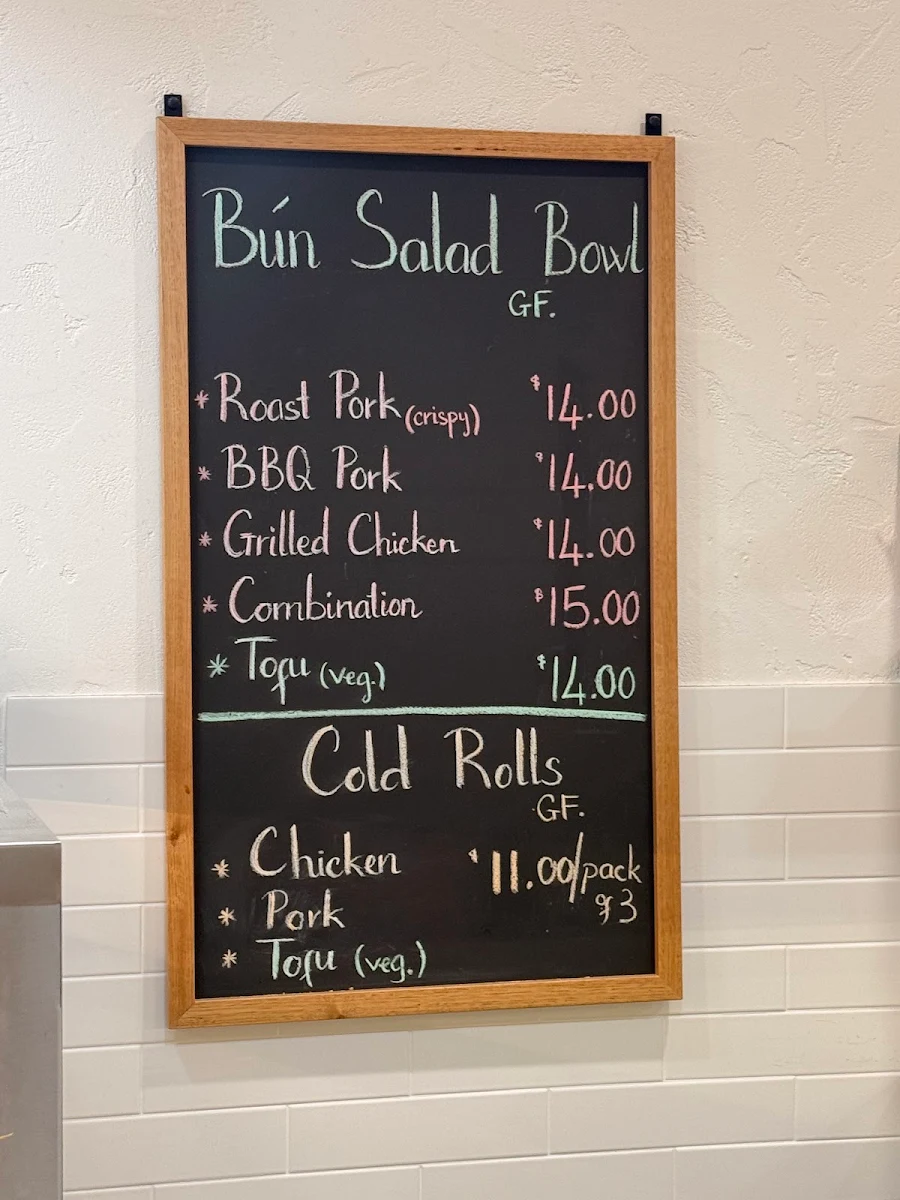 Bún Salad Bowl
GF.
* Roast Pork (crispy) $14.00
* BBQ Pork $14.00
* Grilled Chicken $14.00
* Combination $15.00
* Tofu (veg.) $14.00
Cold Rolls
GF.
* Chicken $11.00/pack
* Pork of 3
* Tofu (veg.)